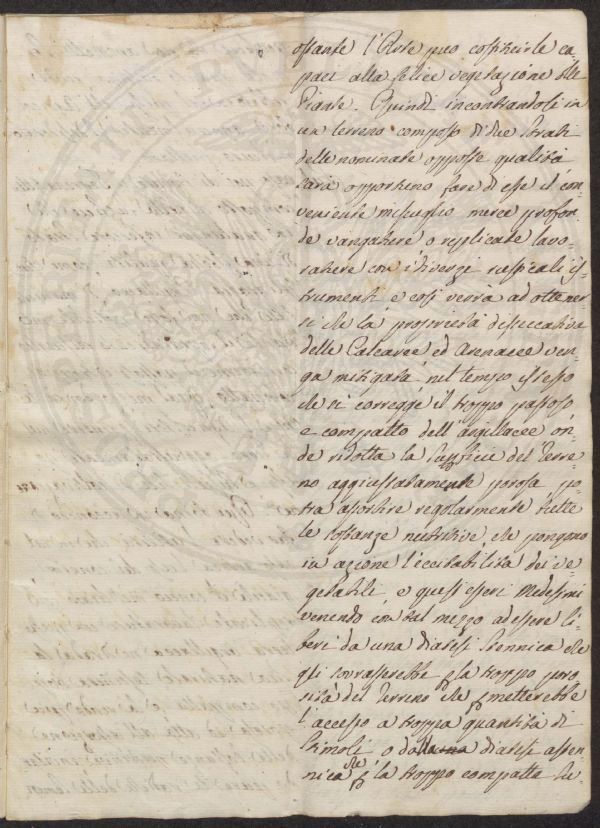 ostante l'Arte puo costituirle ca-
paci alla felice vegetazione delle
Piante. Quindi incontrandosi in
un terreno composto di due Strati
delle nominate opposte qualità
sarà opportuno fare di esse il con-
veniente miscuglio mercè profon-
de vangature o replicate lavo-
rature con i diversi rusticali is-
trumenti e così verrà ad ottener-
si che la proprietà disseccativa
delle Calcaree ed Arenacee ven-
ga mitigata nel tempo istesso
che si corregge il troppo passoso
e compatto dell'argillacee on-
de ridotta la superficie del Terre-
no aggiustatamente porosa po-
tra assorbire regolarmente tutte
le sostanze nutritive, che pongono
in azione l'eccitabilità dei ve-
getabili e questi esseri Medesimi
venendo con tal mezzo ad essere li-
beri da una diatesi stennica che
gli sovrasterebbe p la troppo poro
sità del Terreno che pmetterebbe
l'accesso a troppa quantità di
Stimoli o dalla diatesi asten-
nica che p la troppo compatta su-